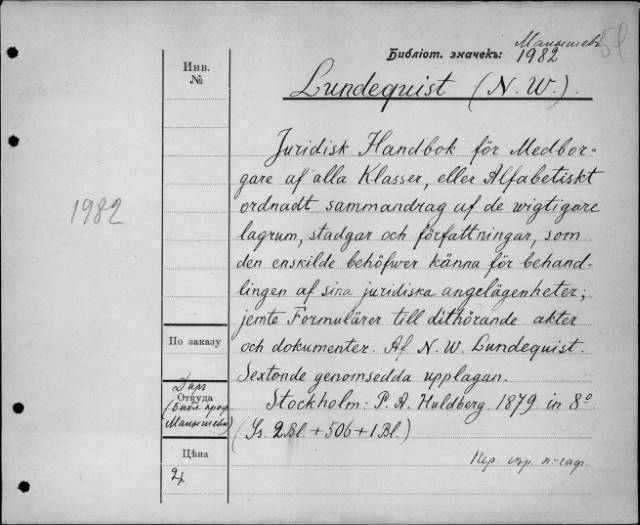 Малышевъ 51
Библіот. значекъ: 1982
Инв.
№
Lundequist (N. W.).
1982
Juridisk Handbok för Medbor-
gare af alla Klasser, eller Alfabetiskt
ordnadt sammandrag af de wigtigare
lagrum, stadgar och författningar, som
den enskilde behöfwer känna för behand-
lingen af sina juridiska angelägenheter;
jemte Formulärer till dithörande akter
och dokumenter. Af N. W. Lundequist.
Sextonde genomsedda upplagan.
Stockholm: P. A. Huldberg. 1879. in 8º
(Ss. 2Bl. + 506 + 1Bl.)
По заказу
Даръ
Откуда
(Библ. проф.
Малышева)
Цѣна